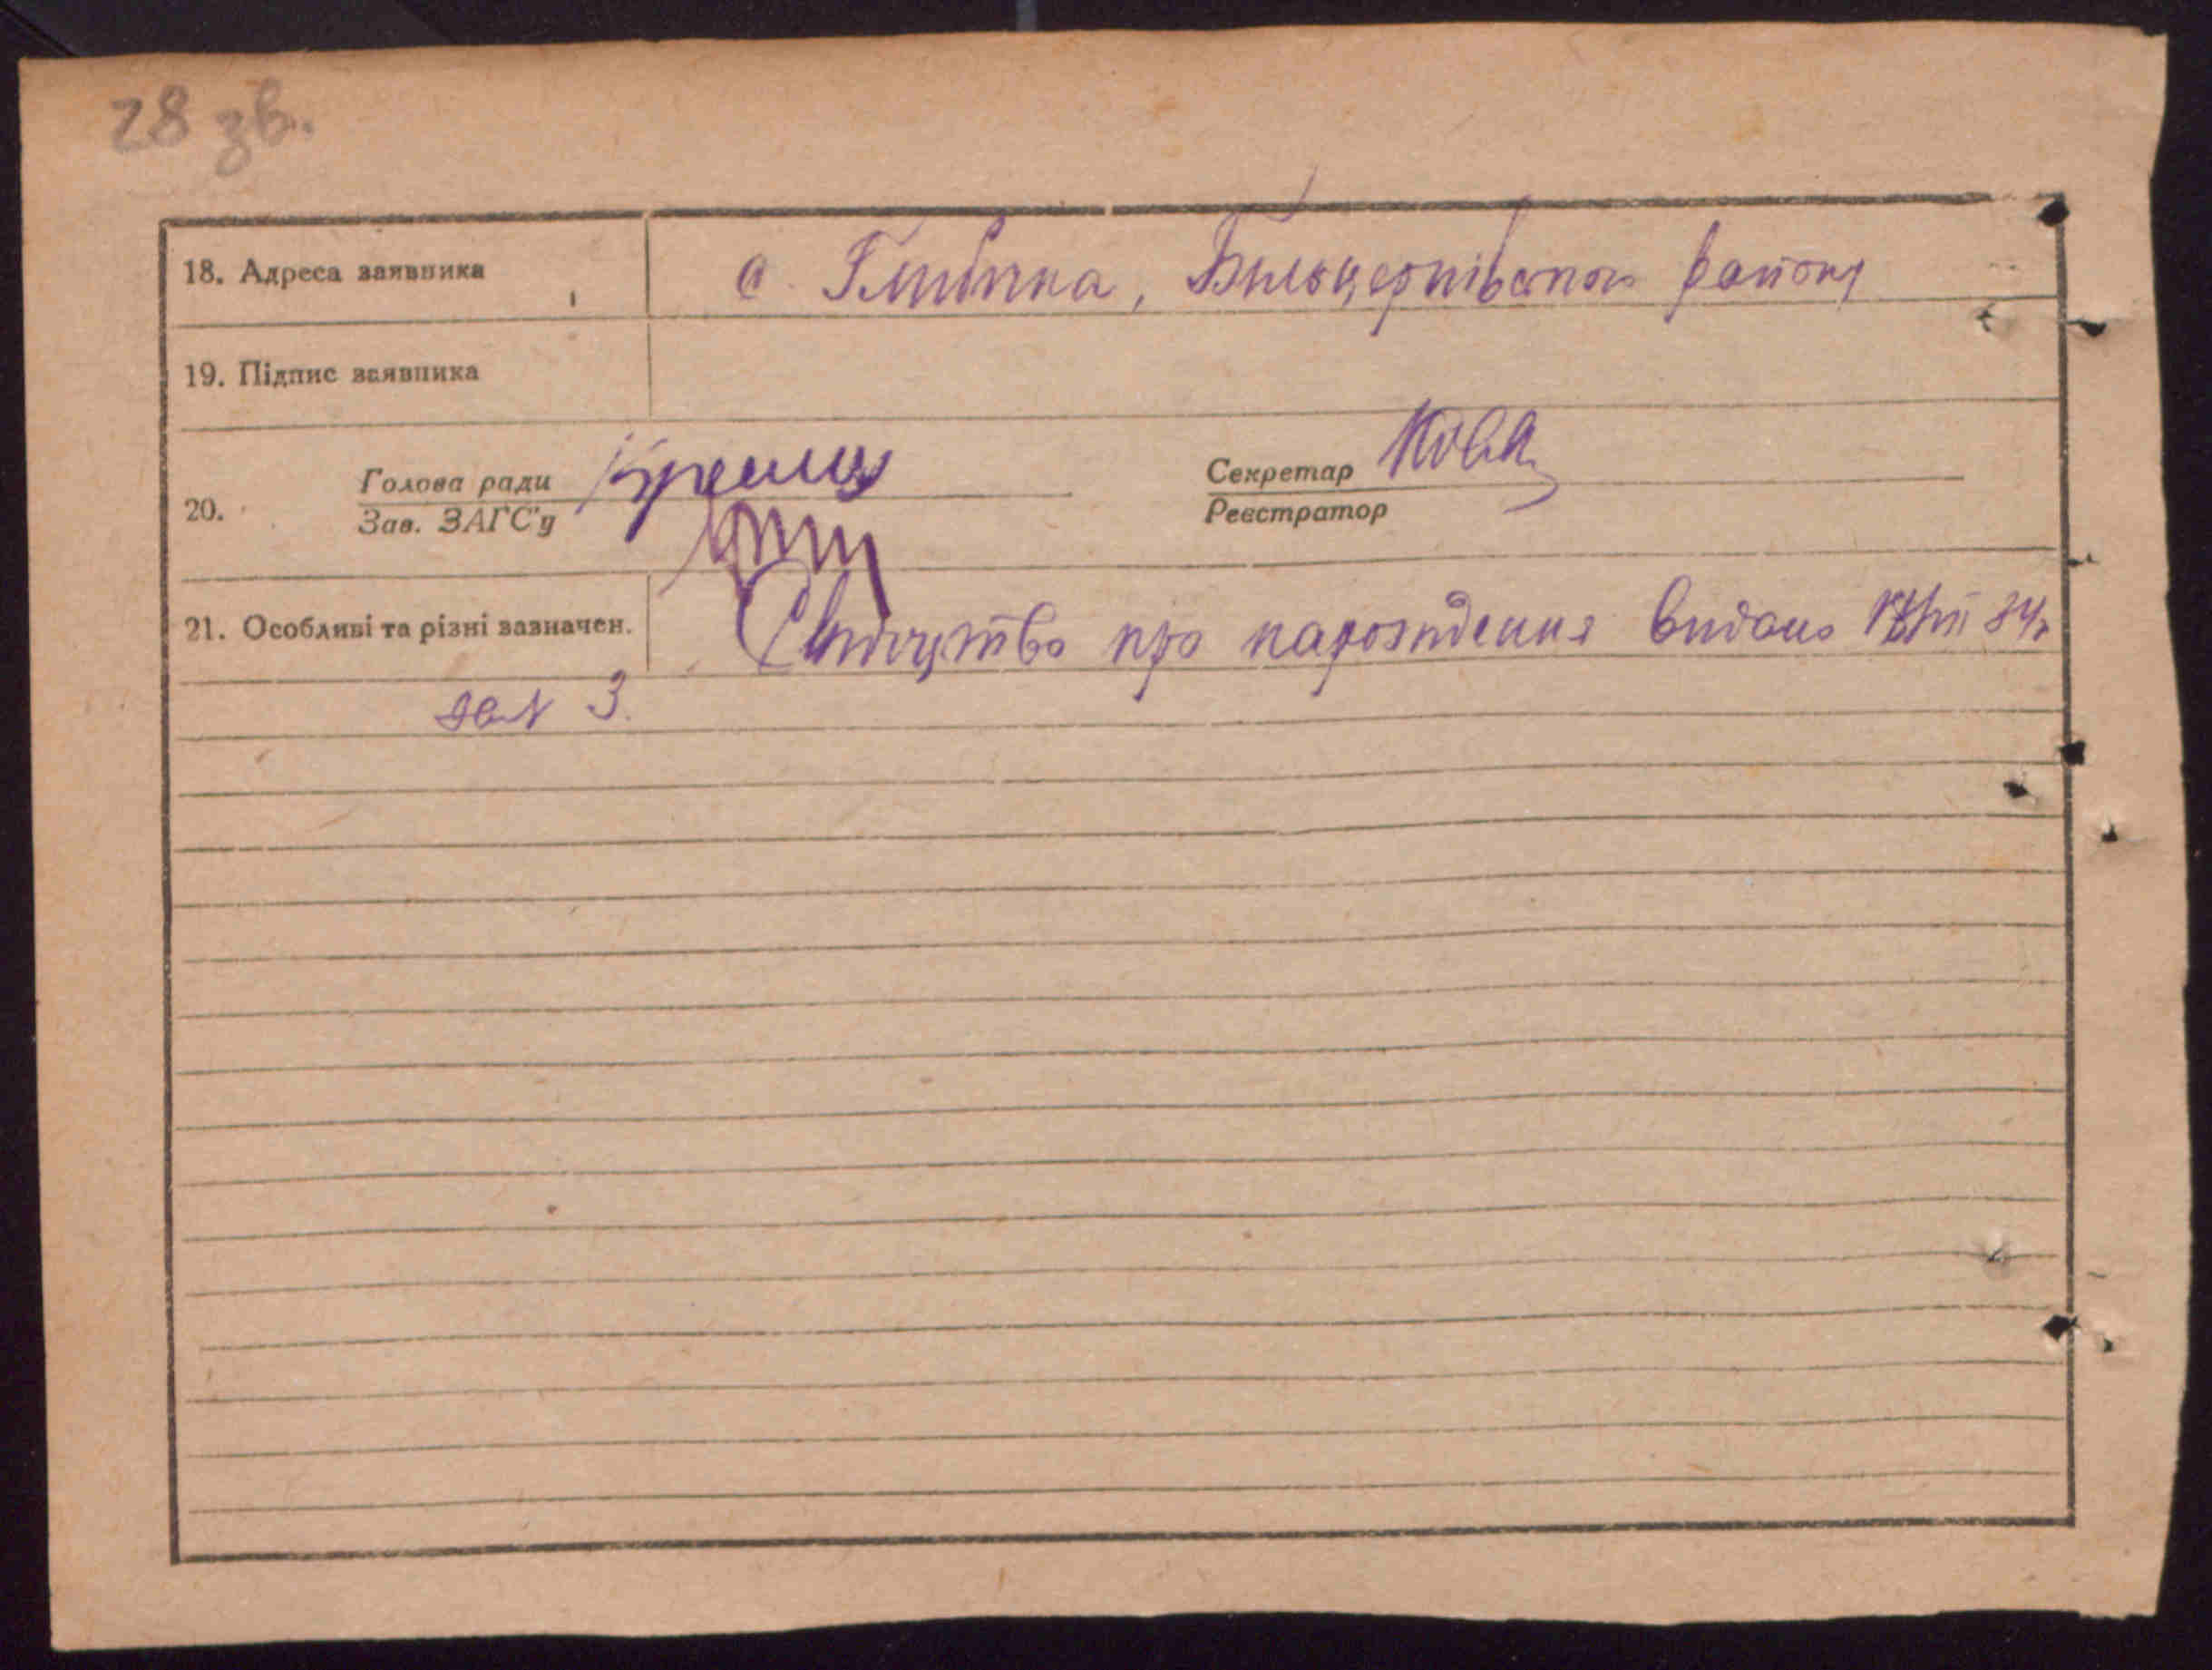 28 зв.
18. Адреса заявника с. Глибочка, Більчерківського району
19. Підпис заявника
Голова ради Секретар
20. Зав. ЗАГС'у Реєстратор
21. Особливі та різні зазначен. Свідоцтво про народження видано 34р
за № 3.